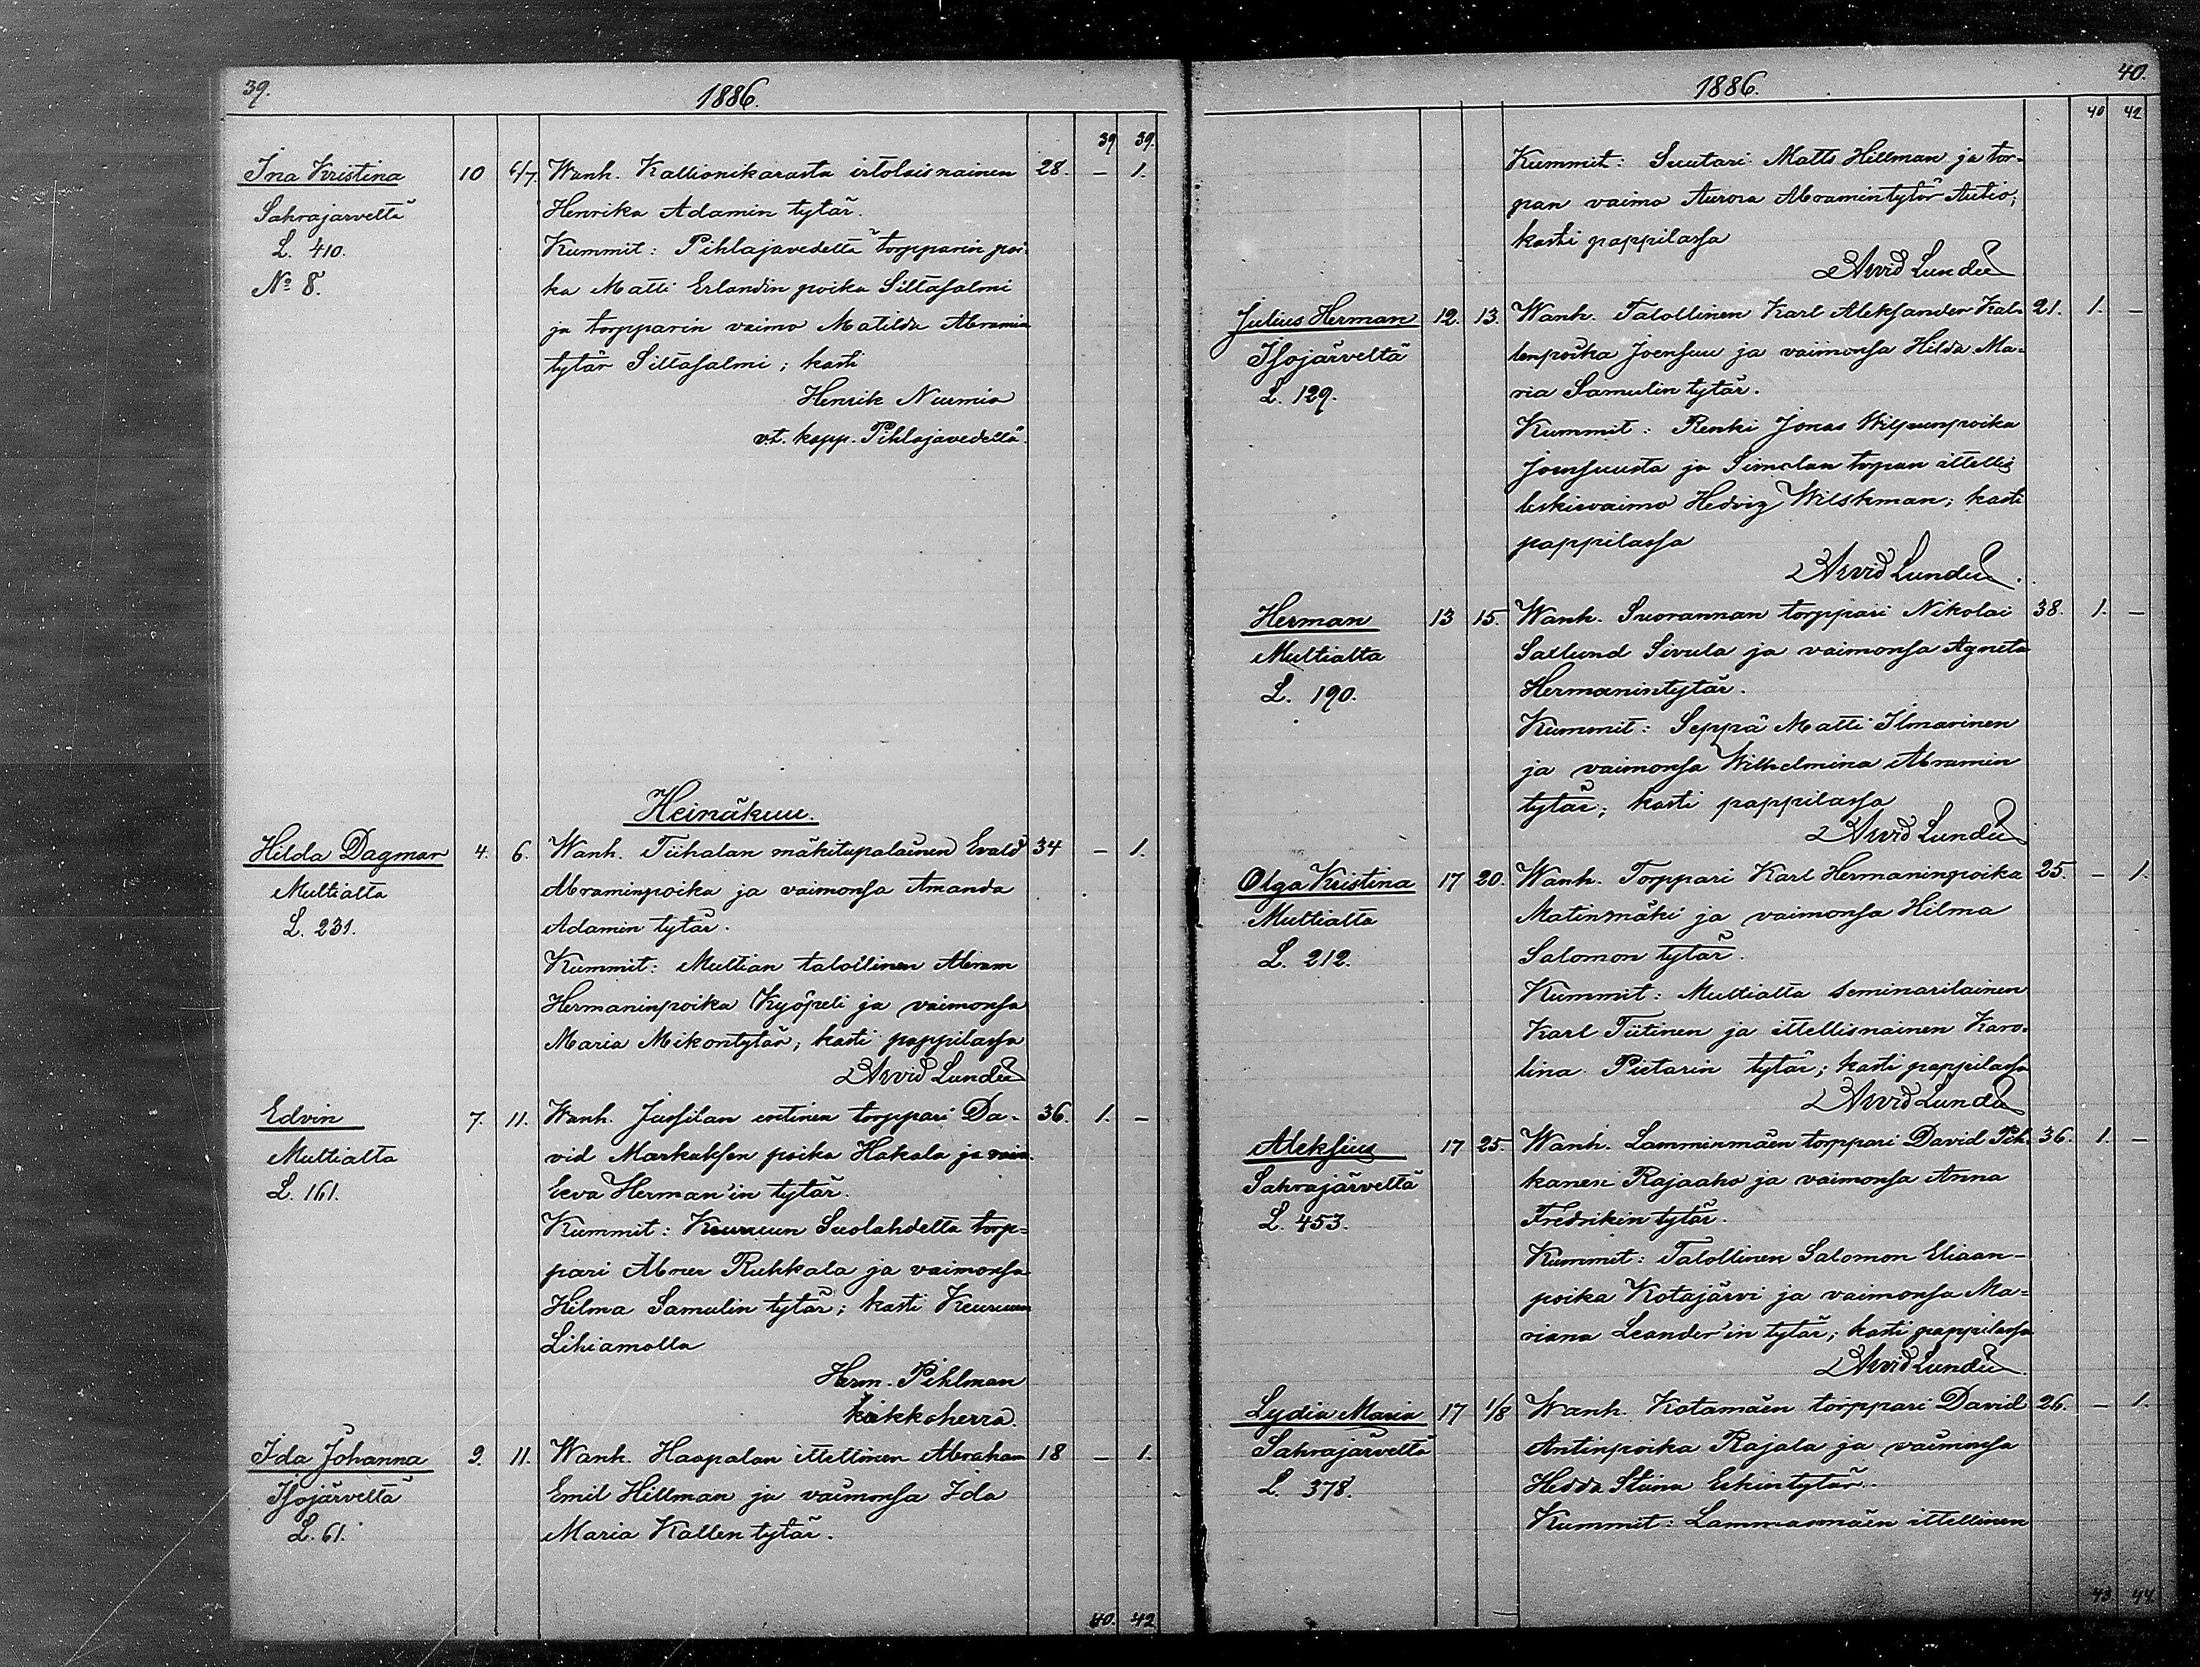 39.
1886.
39 39.
Ina Kristina 10 6/7. Wanh. Kallionikarasta irtolaisnainen 28. – 1.
Sahrajärveltä Henrika Adamin tytär.
L. 410. Kummit: Pihlajavedeltä torpparin poi-
No 8. ka Matti Erlandin poika Siltasalmi
ja torpparin vaimo Matilda Abramin
tytär Siltasalmi; kasti
Henrik Nurmio
v.t. kapp. Pihlajavedellä.
Heinäkuu.
Hilda Dagmar 4. 6. Wanh. Tiihalan mäkitupalainen Evald 34 – 1.
Multialta Abraminpoika ja vaimonsa Amanda
L. 231. Adamin tytär.
Kummit: Multian talollinen Abram
Hermaninpoika Kyöpeli ja vaimonsa
Maria Mikontytär; kasti pappilassa
Arvid Lundén
Edvin 7. 11. Wanh. Jussilan entinen torppari Da- 36. 1. –
Multialta vid Markuksen poika Hakala ja vaim.
L. 161. Eeva Herman'in tytär.
Kummit: Keuruun Suolahdelta torp-
pari Abner Ruhkala ja vaimonsa
Hilma Samulin tytär; kasti Keuruun
Lihiamolla
Herm. Pihlman
kirkkoherra.
Ida Johanna 9. 11. Wanh. Haapalan itellinen Abraham 18 – 1.
Isojärveltä Emil Hillman ja vaimonsa Ida
L. 61. Maria Kallen tytär.
40. 42
40.
1886.
40 42
Kummit: Suutari Matts Hillman ja tor-
pan vaimo Aurora Abramintytär Autio;
kasti pappilassa
Arvid Lundén
Julius Herman 12. 13. Wanh. Talollinen Karl Aleksander Kal- 21. 1. –
Isojärveltä lenpoika Joensuu ja vaimonsa Hilda Ma-
L. 129. ria Samulin tytär.
Kummit: Renki Jonas Wilpunpoika
Joensuusta ja Simolan torpan ittellis
leskivaimo Hedvig Wilskman; kasti
pappilassa
Arvid Lundén.
Herman 13 15. Wanh. Suorannan torppari Nikolai 38. 1. –
Multialta Saxlund Sivula ja vaimonsa Agneta
L. 190. Hermanintytär.
Kummit: Seppä Matti Ilmarinen
ja vaimonsa Wilhelmina Abramin
tytär; kasti pappilassa
Arvid Lundén
Olga Kristina 17 20. Wanh. Torppari Karl Hermaninpoika 25. – 1.
Multialta Matinmäki ja vaimonsa Hilma
L. 212. Salomon tytär.
Kummit: Multialta seminarilainen
Karl Tiitinen ja ittellisnainen Karo-
lina Pietarin tytär; kasti pappilassa
Arvid Lundén
Aleksius 17 25. Wanh. Lamminmäen torppari David Pih- 36. 1. –
Sahrajärveltä kanen Rajaaho ja vaimonsa Anna
L. 453. Fredrikin tytär.
Kummit: Talollinen Salomon Eliaan-
poika Kotajärvi ja vaimonsa Ma-
riana Leander'in tytär; kasti pappilassa
Arvid Lundén.
Lydia Maria 17 1/8 Wanh. Kotamäen torppari David 26. – 1.
Sahrajärveltä Antinpoika Rajala ja vaimonsa
L. 378. Hedda Stiina Erkintytär.
Kummit: Lammasmäen ittellinen
43 44.